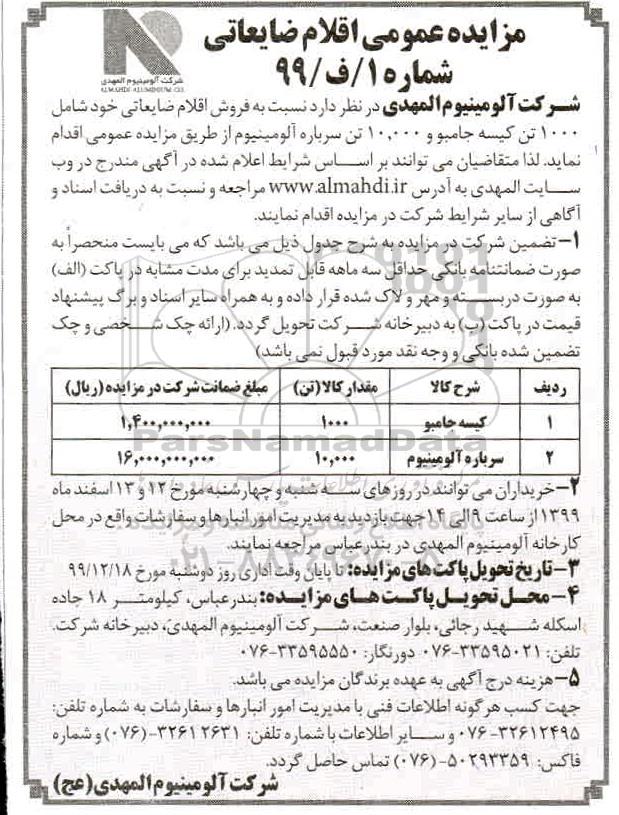 مزایده عمومی اقلام ضایعاتی
شماره ۱/ف/۹۹
شرکت آلومینیوم المهدی
ALMAHDI ALUMINIUM CO.
شرکت آلومینیوم المهدی در نظر دارد نسبت به فروش اقلام ضایعاتی خود شامل
۱۰۰۰ تن کیسه جامبو و ۱۰,۰۰۰ تن سرباره آلومینیوم از طریق مزایده عمومی اقدام
نماید. لذا متقاضیان می توانند بر اساس شرایط اعلام شده در آگهی مندرج در وب
سایت المهدی به آدرس www.almahdi.ir مراجعه و نسبت به دریافت اسناد و
آگاهی از سایر شرایط شرکت در مزایده اقدام نمایند.
۱- تضمین شرکت در مزایده به شرح جدول ذیل می باشد که می بایست منحصراً به
صورت ضمانتنامه بانکی حداقل سه ماهه قابل تمدید برای مدت مشابه در پاکت (الف)
به صورت دربسته و مهر و لاک شده قرار داده و به همراه سایر اسناد و برگ پیشنهاد
قیمت در پاکت (ب) به دبیرخانه شرکت تحویل گردد. (ارائه چک شخصی و چک
تضمین شده بانکی و وجه نقد مورد قبول نمی باشد)
ردیف شرح کالا مقدار کالا (تن) مبلغ ضمانت شرکت در مزایده (ریال)
۱ کیسه جامبو ۱۰۰۰ ۱,۴۰۰,۰۰۰,۰۰۰
۲ سرباره آلومینیوم ۱۰,۰۰۰ ۱۶,۰۰۰,۰۰۰,۰۰۰
ParsNamadData
۲- خریداران می توانند در روزهای سه شنبه و چهارشنبه مورخ ۱۲ و ۱۳ اسفند ماه
۱۳۹۹ از ساعت ۹ الی ۱۴ جهت بازدید به مدیریت امور انبارها و سفارشات واقع در محل
کارخانه آلومینیوم المهدی در بندرعباس مراجعه نمایند.
۳- تاریخ تحویل پاکت های مزایده: تا پایان وقت اداری روز دوشنبه مورخ ۹۹/۱۲/۱۸
۴- محل تحویل پاکت های مزایده: بندرعباس، کیلومتر ۱۸ جاده
اسکله شهید رجائی، بلوار صنعت، شرکت آلومینیوم المهدی، دبیرخانه شرکت.
تلفن: ۳۳۵۹۵۰۲۱-۰۷۶ دورنگار: ۳۳۵۹۵۵۵۰-۰۷۶
۵- هزینه درج آگهی به عهده برندگان مزایده می باشد.
جهت کسب هرگونه اطلاعات فنی با مدیریت امور انبارها و سفارشات به شماره تلفن:
۳۲۶۱۲۴۹۵-۰۷۶ و سایر اطلاعات با شماره تلفن: ۳۲۶۱۲۶۳۱-(۰۷۶) و شماره
فاکس: ۵۰۲۹۳۳۵۹-(۰۷۶) تماس حاصل گردد.
شرکت آلومینیوم المهدی (عج)